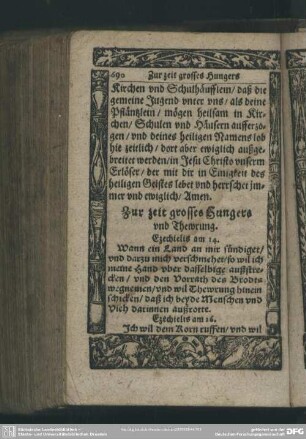 690 Zur zeit grosses Hungers
Kirchen vnd Schulhäufflein / daß die
gemeine Jugend vnter vns / als deine
Pfläntzlein / mögen heilsam in Kir-
chen / Schulen vnd Häusern aufferzo-
gen / vnd deines heiligen Namens lob
hie zeitlich / dort aber ewiglich außge-
breitet werden / in Jesu Christo vnserm
Erlöser / der mit dir in Einigkeit des
heiligen Geistes lebet vnd herrschet im-
mer vnd ewiglich / Amen.
Zur zeit grosses Hungers
vnd Thewrung.
Ezechielis am 14.
Wann ein Land an mir sündiget /
vnd darzu mich verschmehet / so wil ich
meine Hand vber dasselbige außstre-
cken / vnd den Vorrath des Brodts
wegnemen / vnd wil Thewrung hinein
schicken / daß ich beyde Menschen vnd
Vieh darinnen außrotte.
Ezechielis am 16.
Ich wil dem Korn ruffen / vnd wil